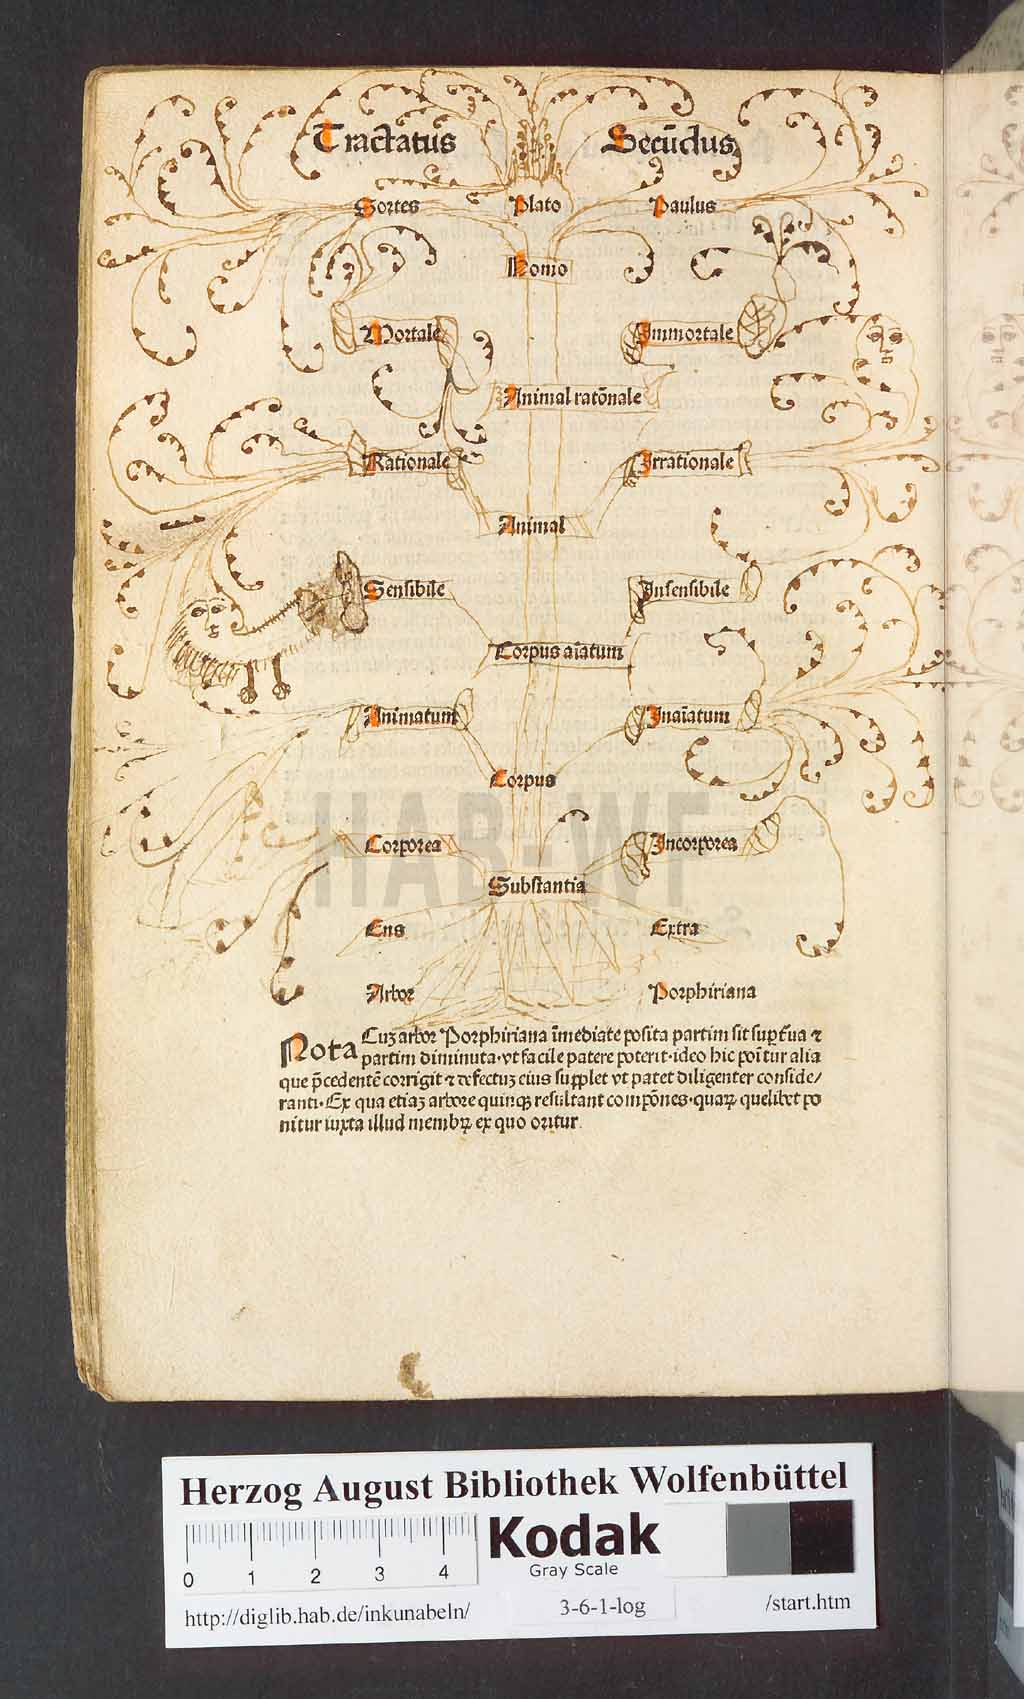 Tractatus Secūdus
Sortes Plato Paulus
Homo
Mortale Immortale
Animal ratōnale
Rationale Irrationale
Animal
Sensibile Insensibile
Corpus aīatum
Animatum Inaīatum
Corpus
Corporea Incorporea
Substantia
Ens Extra
Arbor Porphiriana
Nota Cuꝫ arbor Porphiriana īmediate posita partim sit suꝑflua ⁊
partim diminuta·vt facile patere poterit·ideo hic poītur alia
que p̄cedentē corrigit ⁊ defectuꝫ eius supplet vt patet diligenter conside/
ranti·Ex qua etiaꝫ arbore quinqꝫ resultant compōnes·quaꝝ quelibet po
nitur iuxta illud membꝝ ex quo oritur
HAB-WF
Herzog August Bibliothek Wolfenbüttel
0 1 2 3 4
Kodak
Gray Scale
http://diglib.hab.de/inkunabeln/ 3-6-1-log /start.htm